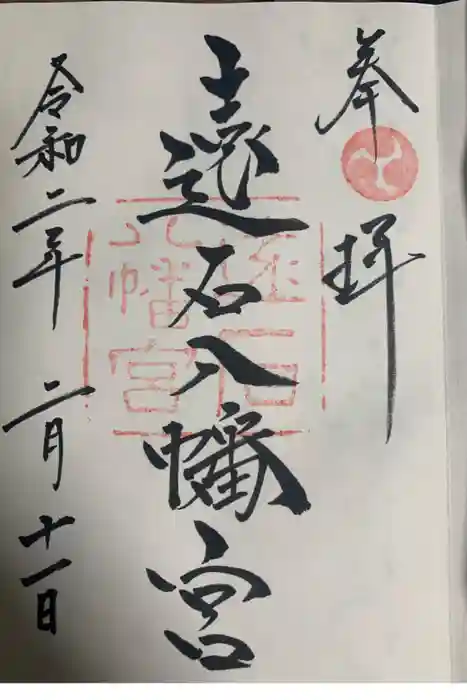 奉拝
遠石八幡宮
遠石八幡宮
令和二年 二月十一日